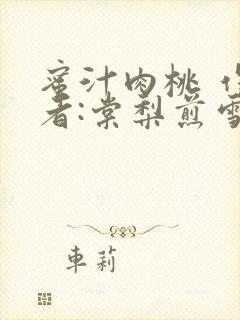 蜜汁肉桃 作
者:棠梨煎雪
車莉